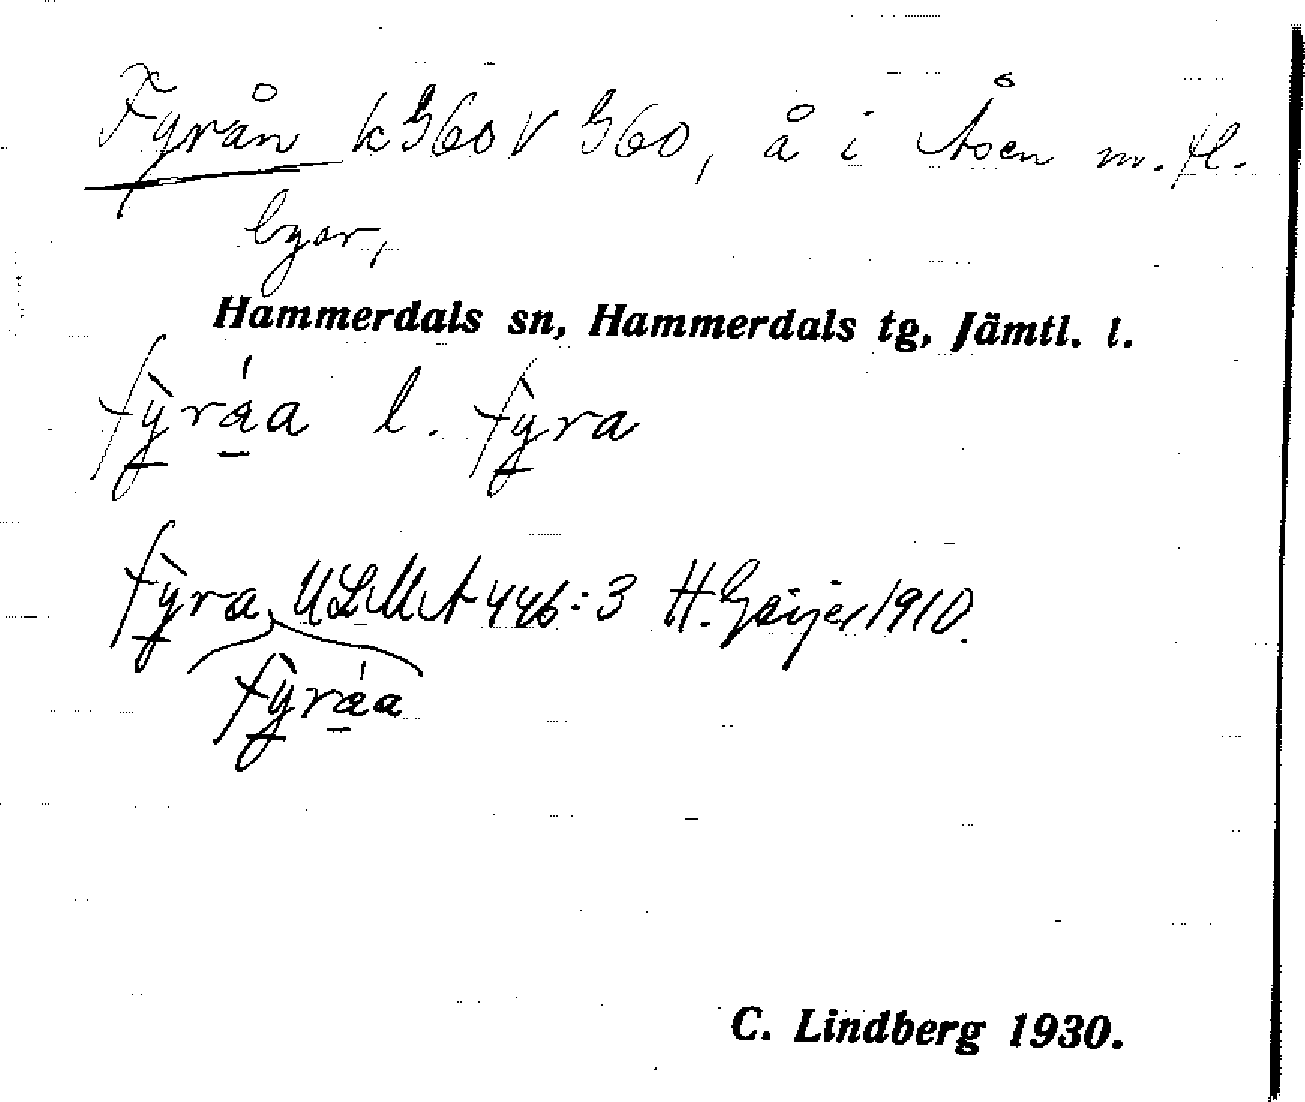 Fyrån k 360 V 360, å i Åsen m. fl.
byar,
Hammerdals sn, Hammerdals tg, Jämtl. l.
fỳ̱rá̱a l. fỳ̱ra
fỳ̱ra, ULMA 446:3 H. Geijer 1910.
fỳ̱rá̱a
C. Lindberg 1930.